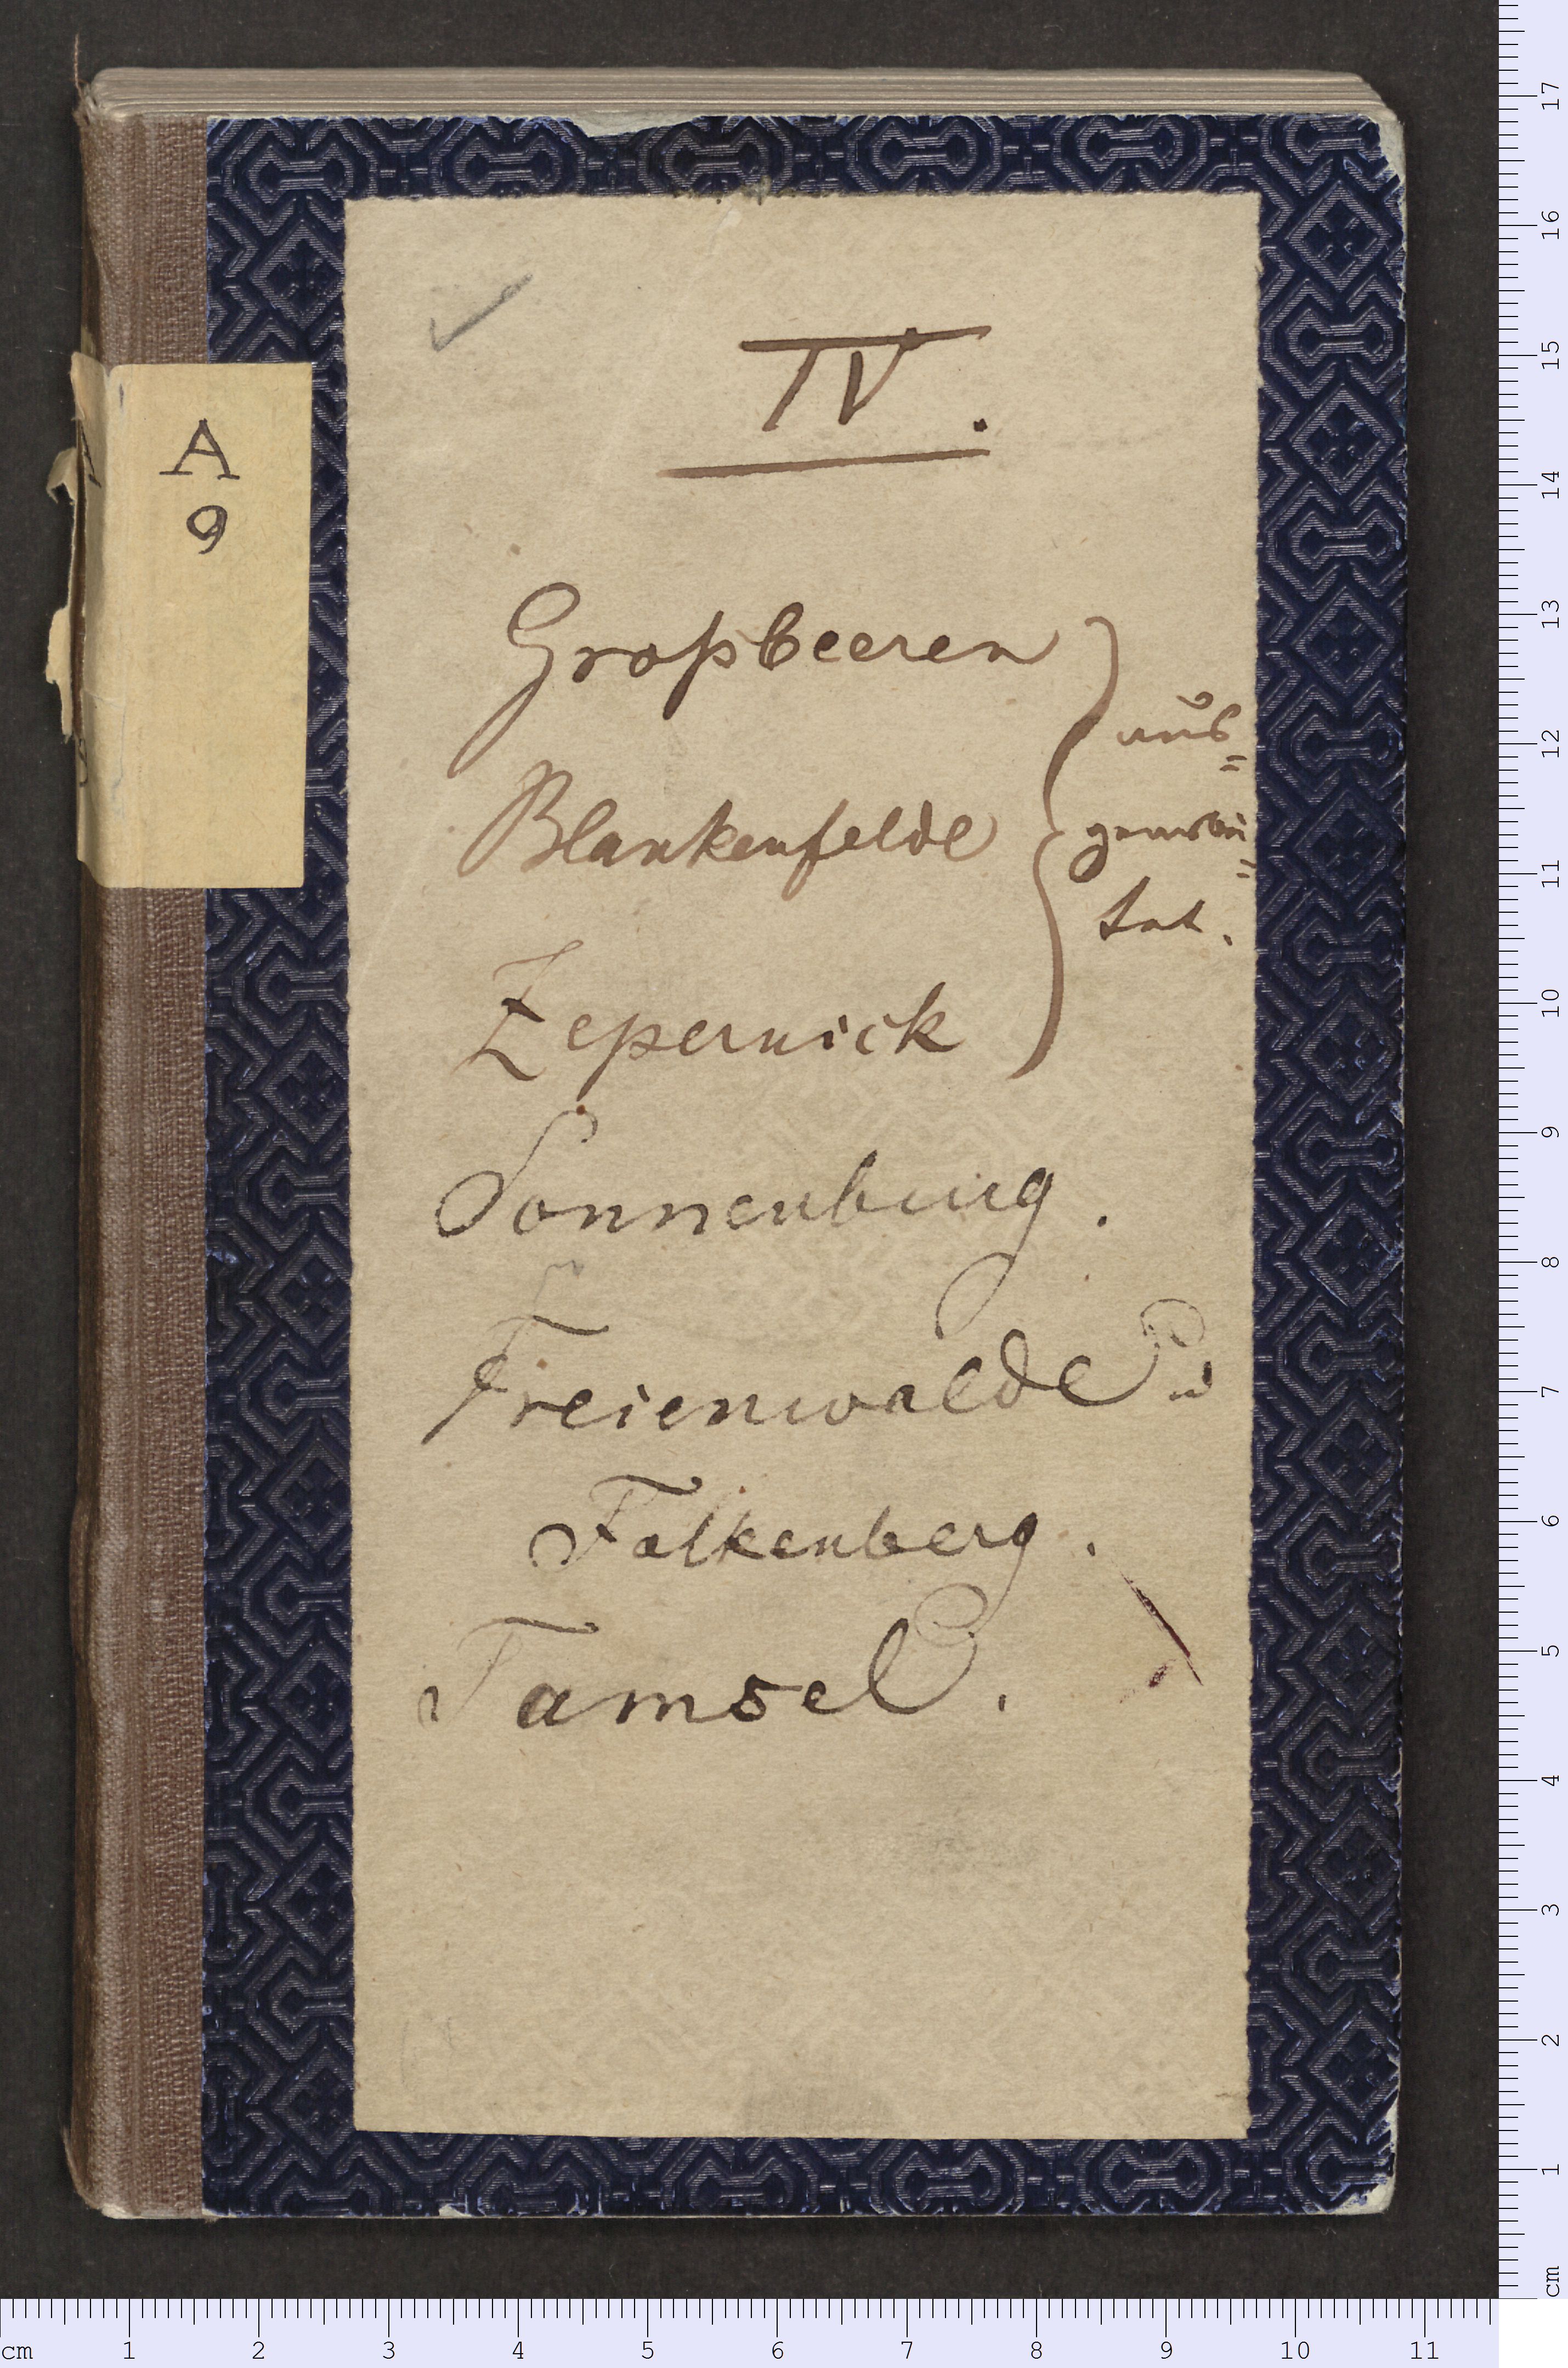 A
9
IV.
Großbeeren
Blankenfelde
Zepernick
aus=
gearbei=
tet.
Sonnenburg.
Freienwalde u
Falkenberg.
Tamsel.
17
16
15
14
13
12
11
10
9
8
7
6
5
4
3
2
1
cm
cm 1 2 3 4 5 6 7 8 9 10 11